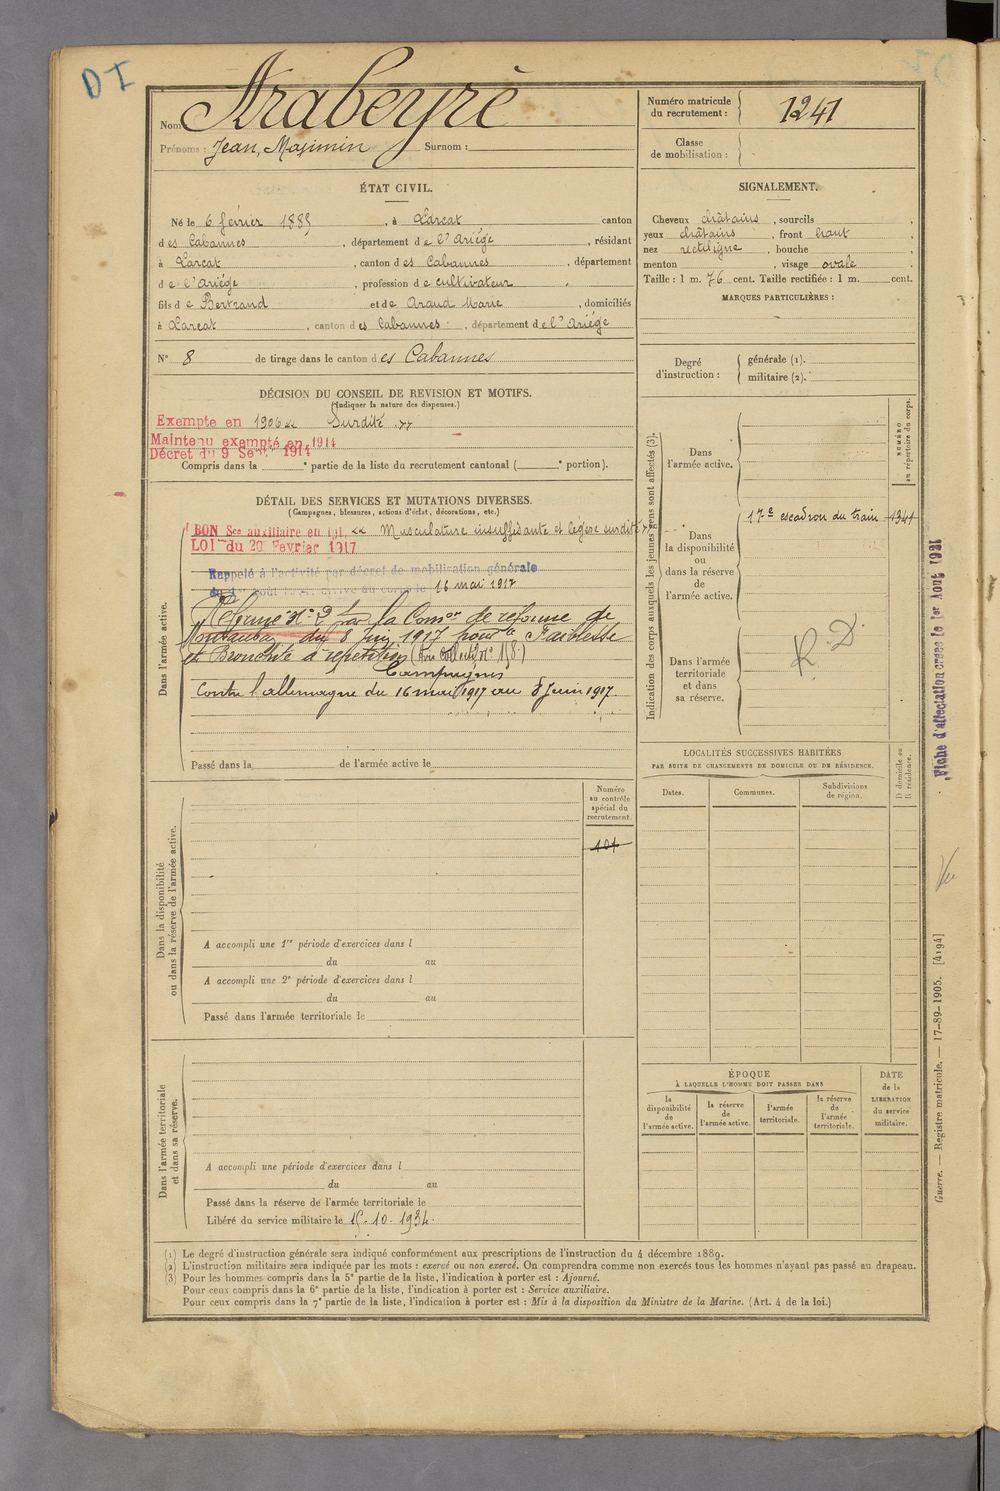 DI
Nom Arabeyre
Prénoms : Jean, Maximin Surnom :
Numéro matricule du recrutement : 1241
Classe de mobilisation :
ÉTAT CIVIL.
Né le 6 février 1885, à Larcat canton
des Cabannes, département de l'Ariège, résidant
à Larcat, canton des Cabannes, département
de l'Ariège, profession de cultivateur
fils de Bertrand et de Araud Marie, domiciliés
à Larcat, canton des Cabannes, département de l'Ariège
N° 8 de tirage dans le canton des Cabannes
SIGNALEMENT.
Cheveux châtains, sourcils
yeux châtains, front haut
nez rectiligne, bouche
menton , visage ovale
Taille : 1 m. 76 cent. Taille rectifiée : 1 m. cent.
MARQUES PARTICULIÈRES :
Degré d'instruction : générale (1).
militaire (2).
DÉCISION DU CONSEIL DE REVISION ET MOTIFS.
(Indiquer la nature des dispenses.)
Exempté en 1906 « Surdité »
Maintenu exempté en 1914
Décret du 9 Septre 1914
Compris dans la e partie de la liste du recrutement cantonal ( e portion).
DÉTAIL DES SERVICES ET MUTATIONS DIVERSES.
(Campagnes, blessures, actions d'éclat, décorations, etc.)
Dans l'armée active.
BON Sce auxiliaire en 191 « Musculature insuffisante et légère surdité »
LOI du 20 Fevrier 1917
Rappelé à l'activité par décret de mobilisation générale
du 1er Août 1914. Arrivé au corps le 16 mai 1917
Réformé N° 2 par la Comon de réforme de
Montauban du 8 juin 1917 pour Faiblesse
et Bronchite à répétition
Campagnes
Contre l'Allemagne du 16 mai 1917 au 8 Juin 1917.
Passé dans la de l'armée active le
Indication des corps auxquels les jeunes gens sont affectés (3).
NUMÉRO au répertoire du corps.
Dans l'armée active.
17e escadron du train 1341
Dans la disponibilité ou dans la réserve de l'armée active.
Dans l'armée territoriale et dans sa réserve.
R. D.
LOCALITÉS SUCCESSIVES HABITÉES
PAR SUITE DE CHANGEMENTS DE DOMICILE OU DE RÉSIDENCE.
Dates. Communes. Subdivisions de région. D domicile ou R résidence.
Dans la disponibilité ou dans la réserve de l'armée active.
Numéro au contrôle spécial du recrutement.
101
A accompli une 1re période d'exercices dans l
du au
A accompli une 2e période d'exercices dans l
du au
Passé dans l'armée territoriale le
Dans l'armée territoriale et dans sa réserve.
A accompli une période d'exercices dans l
du au
Passé dans la réserve de l'armée territoriale le
Libéré du service militaire le 15.10.1934.
ÉPOQUE
À LAQUELLE L'HOMME DOIT PASSER DANS
la disponibilité de l'armée active.
la réserve de l'armée active.
l'armée territoriale.
la réserve de l'armée territoriale.
DATE de la LIBÉRATION du service militaire.
Fiche d'affectation créée le 1er Aout 1921
Vu
Guerre. — Registre matricule. — 17-89-1905. [4194]
(1) Le degré d'instruction générale sera indiqué conformément aux prescriptions de l'instruction du 4 décembre 1889.
(2) L'instruction militaire sera indiquée par les mots : exercé ou non exercé. On comprendra comme non exercés tous les hommes n'ayant pas passé au drapeau.
(3) Pour les hommes compris dans la 5e partie de la liste, l'indication à porter est : Ajourné.
Pour ceux compris dans la 6e partie de la liste, l'indication à porter est : Service auxiliaire.
Pour ceux compris dans la 7e partie de la liste, l'indication à porter est : Mis à la disposition du Ministre de la Marine. (Art. 4 de la loi.)